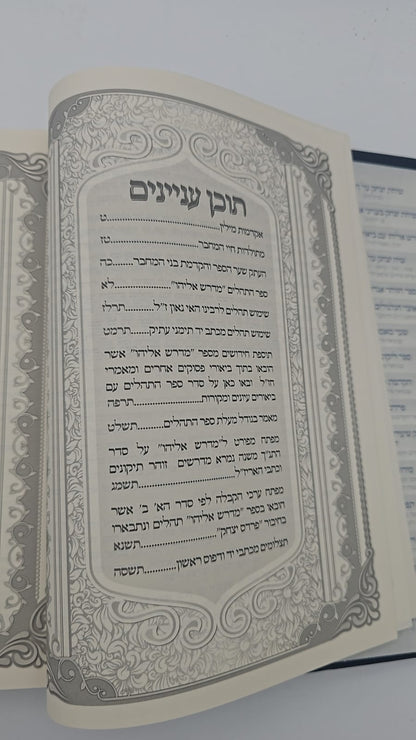 תוכן עניינים
אקדמות מילין..................ט
מתולדות חיי המחבר..................טז
העתק שער הספר והקדמת בני המחבר........כה
ספר התהלים "מדרש אליהו"..................לא
שימוש תהלים לרבינו האי גאון ז"ל........תרלז
שימוש תהלים מכתב יד תימני עתיק........תרמט
תוספת חידושים מספר "מדרש אליהו" אשר
הובאו בתוך ביאורי פסוקים אחרים ומאמרי
חז"ל ובאו כאן על סדר ספר התהלים עם
ביאורים עיונים ומקורות..................תרפה
מאמר בגודל מעלת ספר התהלים..........תשלט
מפתח מפורט ל"מדרש אליהו" על סדר
התנ"ך משנה גמרא מדרשים זוהר תיקונים
וכתבי האריז"ל..................תשמג
מפתח ערכי הקבלה לפי סדר הא' ב' אשר
הובאו בספר "מדרש אליהו" תהלים ונתבארו
בחיבור "פרדס יצחק"..................תשנא
תצלומים מכתבי יד ודפוס ראשון............תשסה